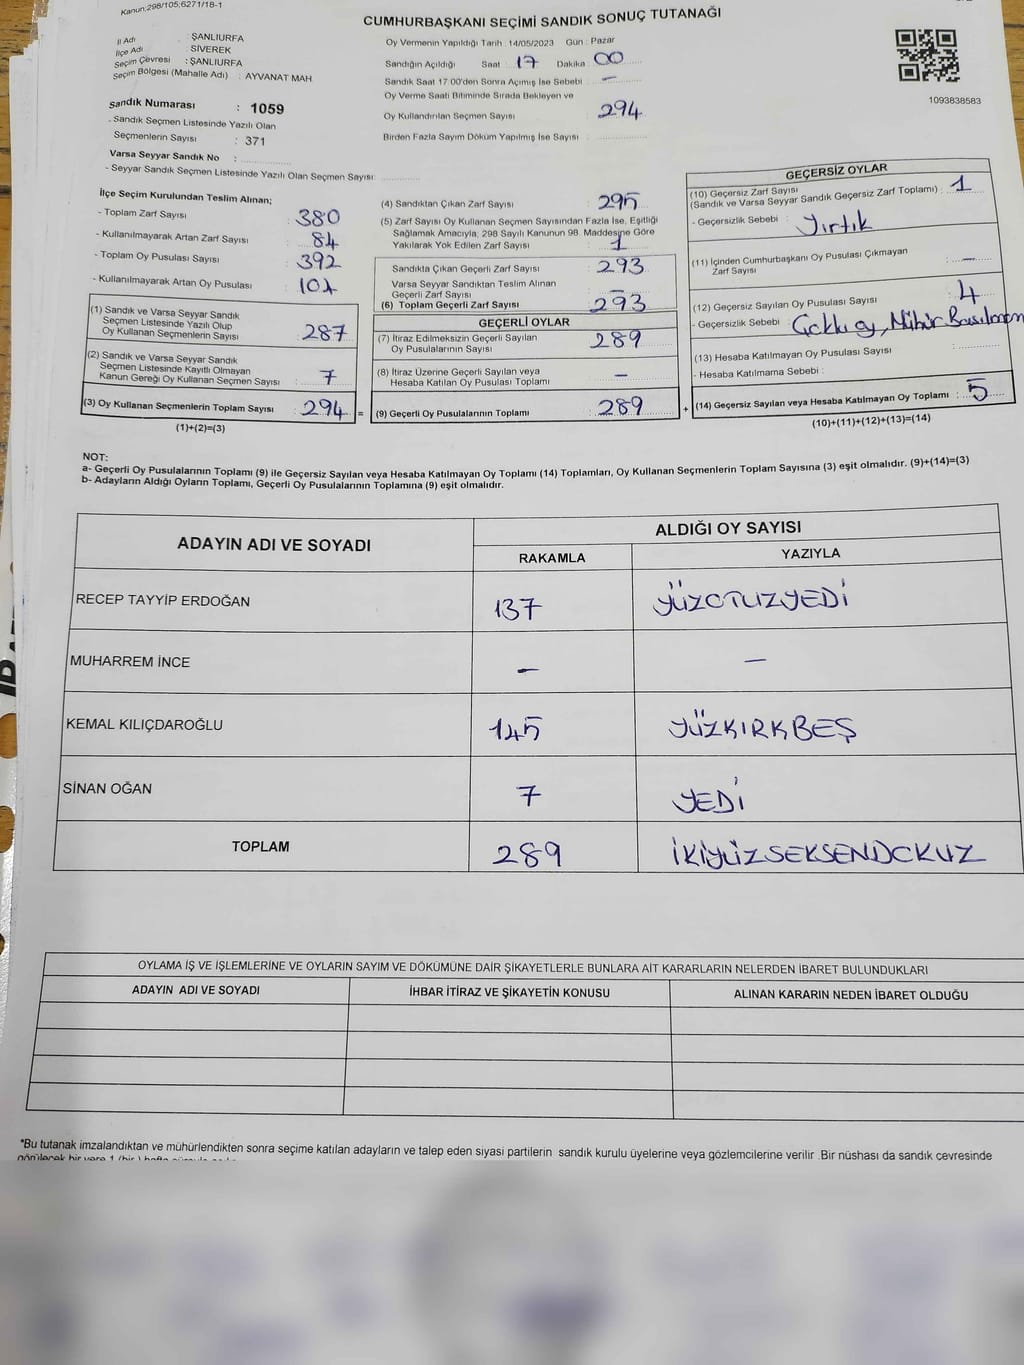 Kanun:298/105;6271/18-1
CUMHURBAŞKANI SEÇİMİ SANDIK SONUÇ TUTANAĞI
İl Adı : ŞANLIURFA
İlçe Adı : SİVEREK
Seçim Çevresi : ŞANLIURFA
Seçim Bölgesi (Mahalle Adı) : AYVANAT MAH
Sandık Numarası : 1059
- Sandık Seçmen Listesinde Yazılı Olan
Seçmenlerin Sayısı : 371
Varsa Seyyar Sandık No :
- Seyyar Sandık Seçmen Listesinde Yazılı Olan Seçmen Sayısı:
Oy Vermenin Yapıldığı Tarih :14/05/2023 Gün : Pazar
Sandığın Açıldığı Saat : 17 Dakika : 00
Sandık Saat 17:00'den Sonra Açımış İse Sebebi : —
Oy Verme Saati Bitiminde Sırada Bekleyen ve
Oy Kullandırılan Seçmen Sayısı : 294
Birden Fazla Sayım Döküm Yapılmış İse Sayısı :
1093838583
İlçe Seçim Kurulundan Teslim Alınan;
- Toplam Zarf Sayısı : 380
- Kullanılmayarak Artan Zarf Sayısı : 84
- Toplam Oy Pusulası Sayısı : 392
- Kullanılmayarak Artan Oy Pusulası : 101
(1) Sandık ve Varsa Seyyar Sandık
Seçmen Listesinde Yazılı Olup
Oy Kullanan Seçmenlerin Sayısı : 287
(2) Sandık ve Varsa Seyyar Sandık
Seçmen Listesinde Kayıtlı Olmayan
Kanun Gereği Oy Kullanan Seçmen Sayısı : 7
(3) Oy Kullanan Seçmenlerin Toplam Sayısı : 294 =
(1)+(2)=(3)
(4) Sandıktan Çıkan Zarf Sayısı : 295
(5) Zarf Sayısı Oy Kullanan Seçmen Sayısından Fazla İse, Eşitliği
Sağlamak Amacıyla, 298 Sayılı Kanunun 98. Maddesine Göre
Yakılarak Yok Edilen Zarf Sayısı : 1
Sandıkta Çıkan Geçerli Zarf Sayısı : 293
Varsa Seyyar Sandıktan Teslim Alınan
Geçerli Zarf Sayısı : —
(6) Toplam Geçerli Zarf Sayısı : 293
GEÇERLİ OYLAR
(7) İtiraz Edilmeksizin Geçerli Sayılan
Oy Pusulalarının Sayısı : 289
(8) İtiraz Üzerine Geçerli Sayılan veya
Hesaba Katılan Oy Pusulası Toplamı : —
(9) Geçerli Oy Pusulalarının Toplamı : 289 +
GEÇERSİZ OYLAR
(10) Geçersiz Zarf Sayısı
(Sandık ve Varsa Seyyar Sandık Geçersiz Zarf Toplamı) : 1
- Geçersizlik Sebebi : Yırtık
(11) İçinden Cumhurbaşkanı Oy Pusulası Çıkmayan
Zarf Sayısı : —
(12) Geçersiz Sayılan Oy Pusulası Sayısı : 4
- Geçersizlik Sebebi : Çoklu oy, Mühür
(13) Hesaba Katılmayan Oy Pusulası Sayısı :
- Hesaba Katılmama Sebebi :
(14) Geçersiz Sayılan veya Hesaba Katılmayan Oy Toplamı : 5
(10)+(11)+(12)+(13)=(14)
NOT:
a- Geçerli Oy Pusulalarının Toplamı (9) ile Geçersiz Sayılan veya Hesaba Katılmayan Oy Toplamı (14) Toplamları, Oy Kullanan Seçmenlerin Toplam Sayısına (3) eşit olmalıdır. (9)+(14)=(3)
b- Adayların Aldığı Oyların Toplamı, Geçerli Oy Pusulalarının Toplamına (9) eşit olmalıdır.
ADAYIN ADI VE SOYADI ALDIĞI OY SAYISI
RAKAMLA YAZIYLA
RECEP TAYYİP ERDOĞAN 137 YÜZOTUZYEDİ
MUHARREM İNCE — —
KEMAL KILIÇDAROĞLU 145 YÜZKIRKBEŞ
SİNAN OĞAN 7 YEDİ
TOPLAM 289 İKİYÜZSEKSENDOKUZ
OYLAMA İŞ VE İŞLEMLERİNE VE OYLARIN SAYIM VE DÖKÜMÜNE DAİR ŞİKAYETLERLE BUNLARA AİT KARARLARIN NELERDEN İBARET BULUNDUKLARI
ADAYIN ADI VE SOYADI İHBAR İTİRAZ VE ŞİKAYETİN KONUSU ALINAN KARARIN NEDEN İBARET OLDUĞU
*Bu tutanak imzalandıktan ve mühürlendikten sonra seçime katılan adayların ve talep eden siyasi partilerin sandık kurulu üyelerine veya gözlemcilerine verilir .Bir nüshası da sandık çevresinde